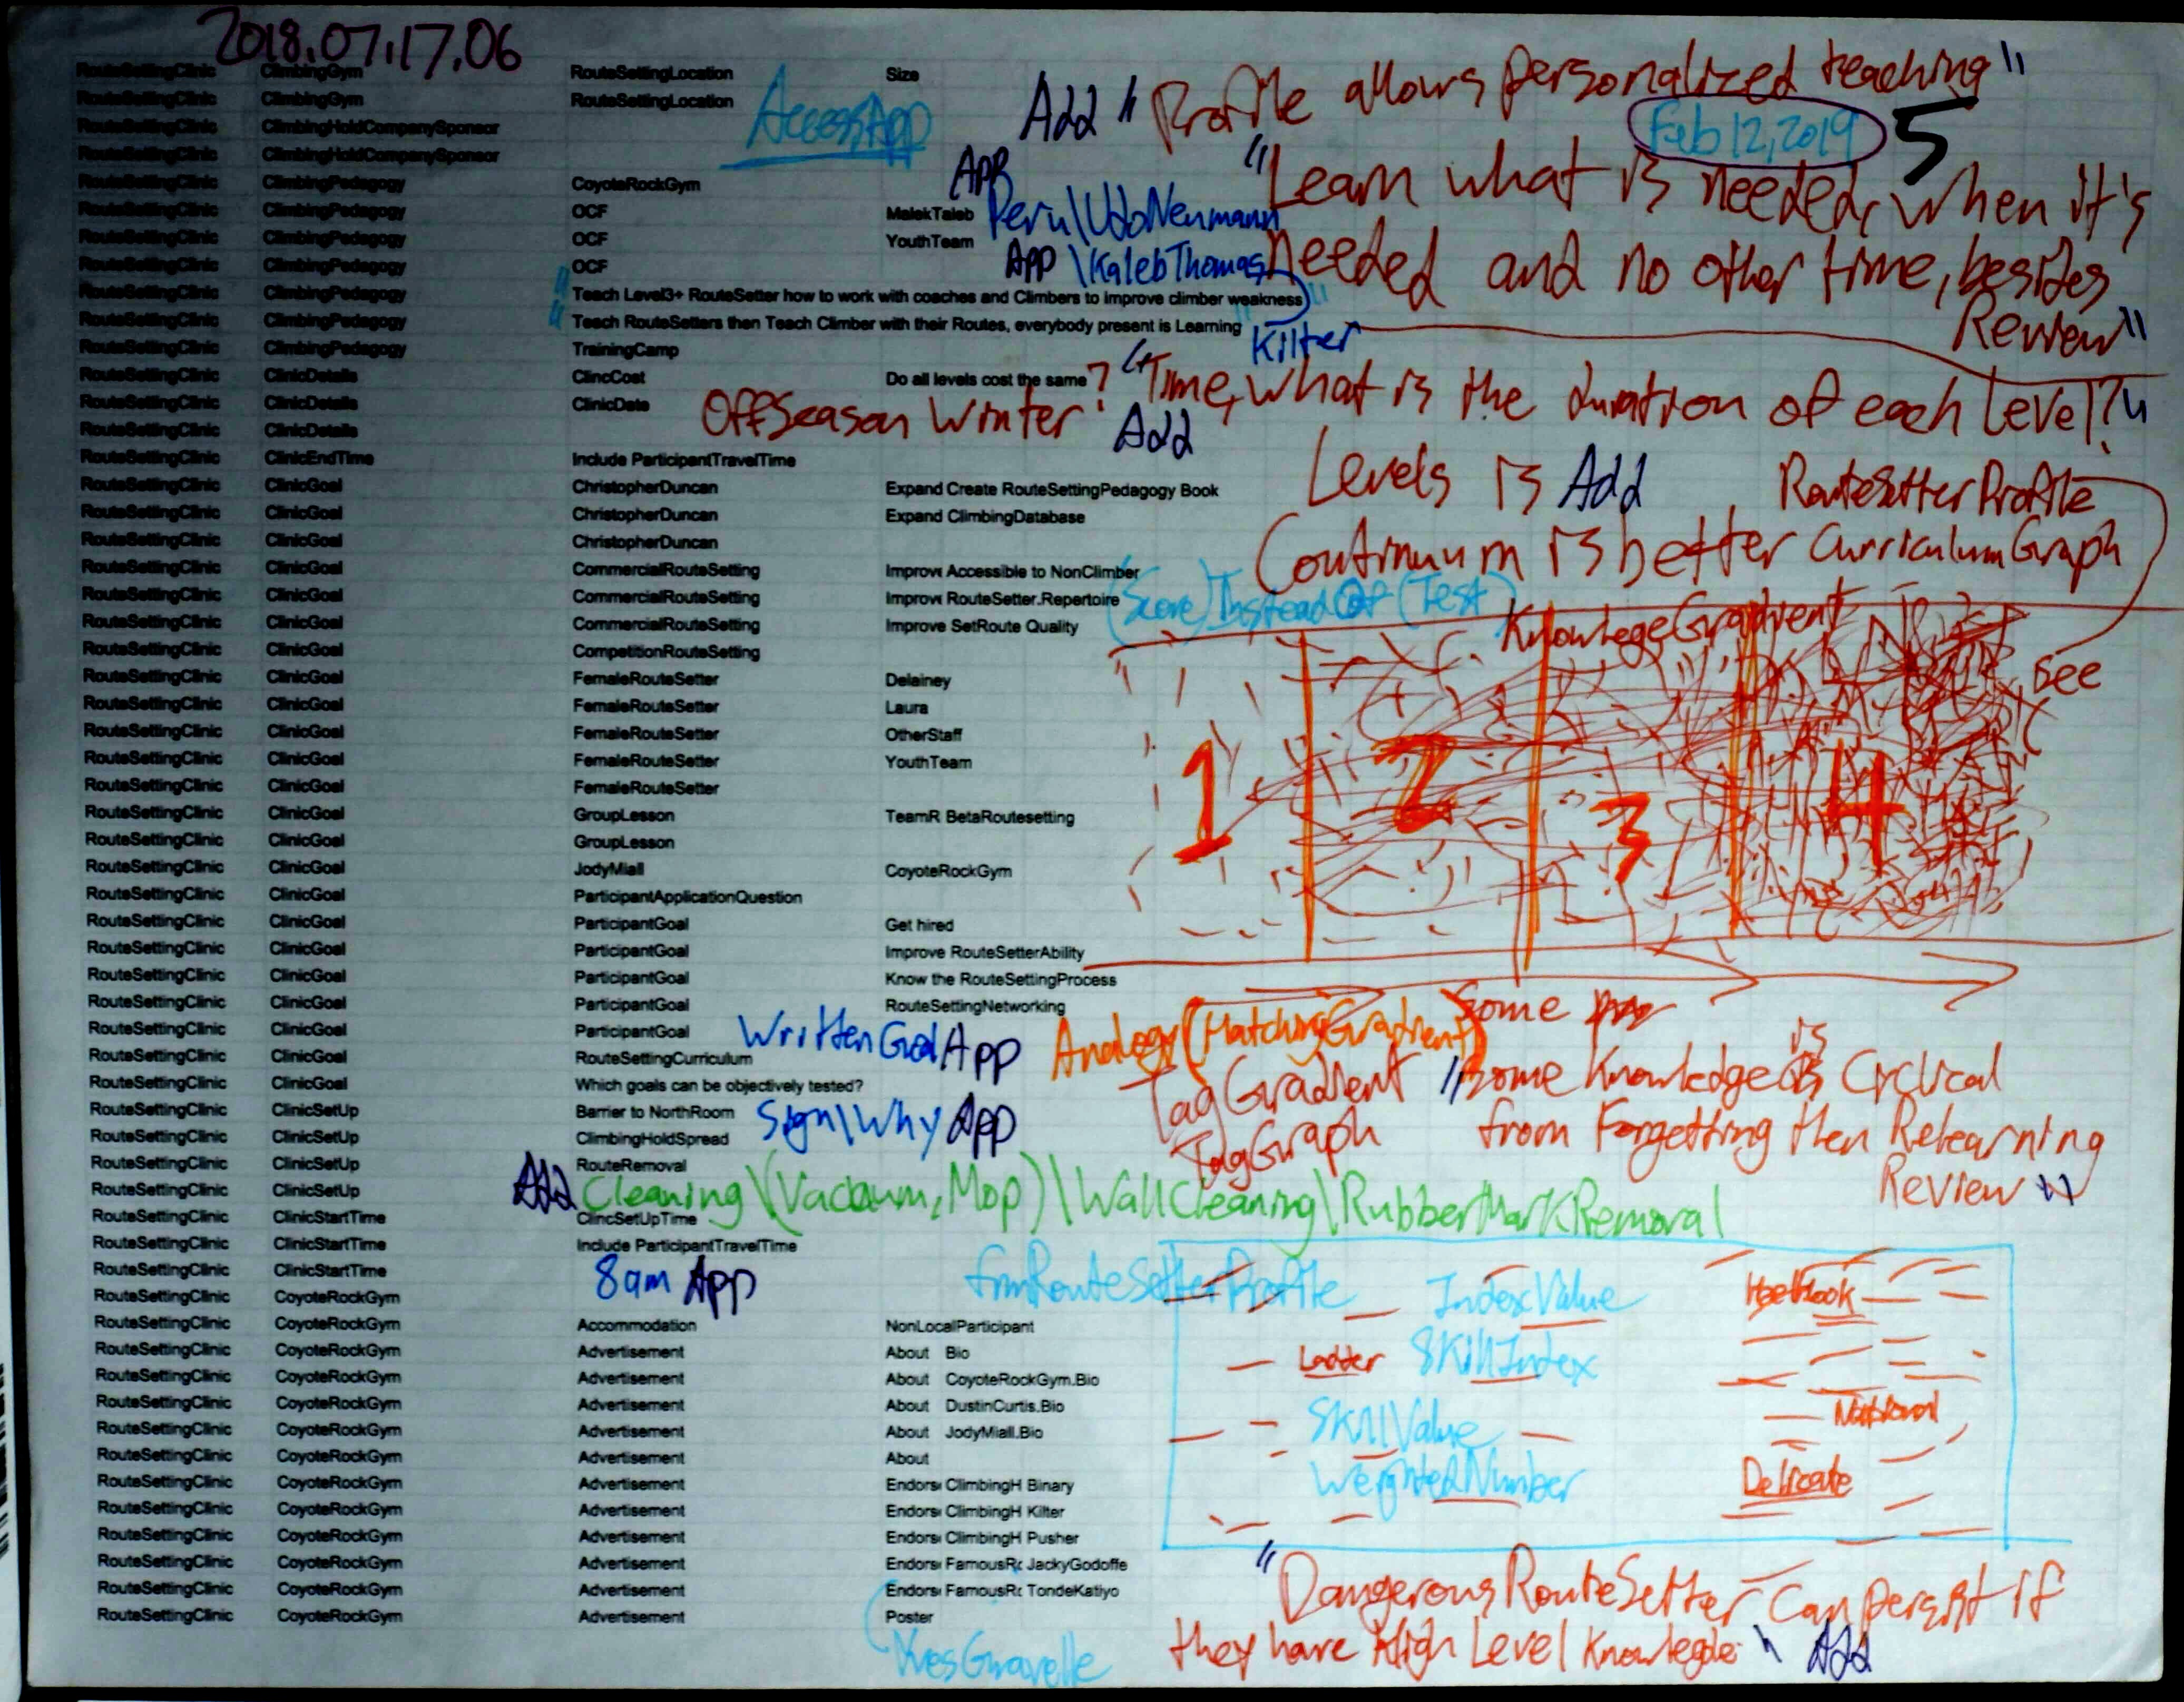 2018.07.17.06
RouteSettingClinic ClimbingGym RouteSettingLocation Size
RouteSettingClinic ClimbingGym RouteSettingLocation
AccessApp
Add "Profile allows personalized teaching"
Feb 12, 2019 5
RouteSettingClinic ClimbingHoldCompanySponsor
RouteSettingClinic ClimbingHoldCompanySponsor
"Learn what is needed, when it's
needed and no other time, besides
Review"
RouteSettingClinic ClimbingPedagogy CoyoteRockGym
App
RouteSettingClinic ClimbingPedagogy OCF MalekTaleb
Peru\UdoNeumann
RouteSettingClinic ClimbingPedagogy OCF YouthTeam
App \KalebThomas
RouteSettingClinic ClimbingPedagogy OCF
RouteSettingClinic ClimbingPedagogy "Teach Level3+ RouteSetter how to work with coaches and Climbers to improve climber weakness"
RouteSettingClinic ClimbingPedagogy "Teach RouteSetters then Teach Climber with their Routes, everybody present is Learning"
Kilter
RouteSettingClinic ClimbingPedagogy TrainingCamp
RouteSettingClinic ClinicDetails ClincCost Do all levels cost the same?
"Time, what is the duration of each Level?"
Add
RouteSettingClinic ClinicDetails ClinicDate OffSeason Winter?
RouteSettingClinic ClinicDetails
RouteSettingClinic ClinicEndTime Include ParticipantTravelTime
Levels is Add RouteSetterProfile
Continuum is better CurriculumGraph
RouteSettingClinic ClinicGoal ChristopherDuncan Expand Create RouteSettingPedagogy Book
RouteSettingClinic ClinicGoal ChristopherDuncan Expand ClimbingDatabase
RouteSettingClinic ClinicGoal ChristopherDuncan
RouteSettingClinic ClinicGoal CommercialRouteSetting Improve Accessible to NonClimber
RouteSettingClinic ClinicGoal CommercialRouteSetting Improve RouteSetter.Repertoire
(Score)InsteadOf(Test)
KnowlegeGradient
See
1 2 3 4
RouteSettingClinic ClinicGoal CommercialRouteSetting Improve SetRoute Quality
RouteSettingClinic ClinicGoal CompetitionRouteSetting
RouteSettingClinic ClinicGoal FemaleRouteSetter Delainey
RouteSettingClinic ClinicGoal FemaleRouteSetter Laura
RouteSettingClinic ClinicGoal FemaleRouteSetter OtherStaff
RouteSettingClinic ClinicGoal FemaleRouteSetter YouthTeam
RouteSettingClinic ClinicGoal FemaleRouteSetter
RouteSettingClinic ClinicGoal GroupLesson TeamR BetaRoutesetting
RouteSettingClinic ClinicGoal GroupLesson
RouteSettingClinic ClinicGoal JodyMiall CoyoteRockGym
RouteSettingClinic ClinicGoal ParticipantApplicationQuestion
RouteSettingClinic ClinicGoal ParticipantGoal Get hired
RouteSettingClinic ClinicGoal ParticipantGoal Improve RouteSetterAbility
RouteSettingClinic ClinicGoal ParticipantGoal Know the RouteSettingProcess
RouteSettingClinic ClinicGoal ParticipantGoal RouteSettingNetworking
Some
RouteSettingClinic ClinicGoal ParticipantGoal WrittenGoal App
Analogy(MatchingGradient)
TagGradient
TagGraph
"Some Knowledge is Cyclical
from Forgetting then Relearning
Review"
RouteSettingClinic ClinicGoal RouteSettingCurriculum
RouteSettingClinic ClinicGoal Which goals can be objectively tested?
RouteSettingClinic ClinicSetUp Barrier to NorthRoom Sign\Why App
RouteSettingClinic ClinicSetUp ClimbingHoldSpread
RouteSettingClinic ClinicSetUp RouteRemoval
RouteSettingClinic ClinicSetUp Add Cleaning\(Vacuum, Mop)\WallCleaning\RubberMarkRemoval
RouteSettingClinic ClinicStartTime ClincSetUpTime
RouteSettingClinic ClinicStartTime Include ParticipantTravelTime
RouteSettingClinic ClinicStartTime 8am App
FromRouteSetterProfile IndexValue HeelHook
Ladder SkillIndex
SkillValue National
WeightedNumber Delicate
RouteSettingClinic CoyoteRockGym
RouteSettingClinic CoyoteRockGym Accommodation NonLocalParticipant
RouteSettingClinic CoyoteRockGym Advertisement About Bio
RouteSettingClinic CoyoteRockGym Advertisement About CoyoteRockGym.Bio
RouteSettingClinic CoyoteRockGym Advertisement About DustinCurtis.Bio
RouteSettingClinic CoyoteRockGym Advertisement About JodyMiall.Bio
RouteSettingClinic CoyoteRockGym Advertisement About
RouteSettingClinic CoyoteRockGym Advertisement Endors ClimbingH Binary
RouteSettingClinic CoyoteRockGym Advertisement Endors ClimbingH Kilter
RouteSettingClinic CoyoteRockGym Advertisement Endors ClimbingH Pusher
RouteSettingClinic CoyoteRockGym Advertisement Endors FamousR JackyGodoffe
RouteSettingClinic CoyoteRockGym Advertisement Endors FamousR TondeKatiyo
RouteSettingClinic CoyoteRockGym Advertisement Poster
YvesGravelle
"DangerousRouteSetter Can persist if
they have High Level Knowlegde" Add